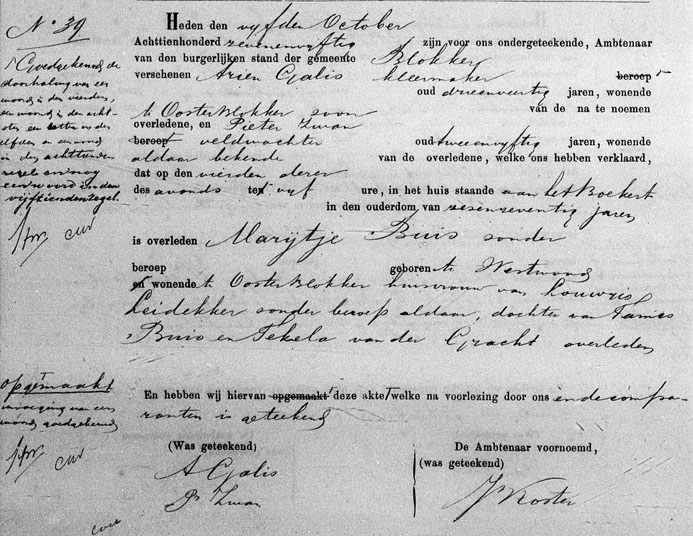 N° 39
Heden den vijfden October
Achttienhonderd zevenenvijftig zijn voor ons ondergeteekende, Ambtenaar
van den burgerlijken stand der gemeente Blokker
verschenen Arien Galis kleermaker beroep
oud drieenveertig jaren, wonende
te Oosterblokker zoon van de na te noemen
overledene, en Pieter Zwan
beroep veldwachter oud tweeenvijftig jaren, wonende
aldaar bekende van de overledene, welke ons hebben verklaard,
dat op den vierden dezer
des avonds ten vijf ure, in het huis staande aan het Boekert
in den ouderdom van zesenzeventig jaren
is overleden Marijtje Buis zonder
beroep geboren te Westwoud
en wonende te Oosterblokker huisvrouw van Louwris
Leidekker zonder beroep aldaar, dochter van
Buis en Tekela van der Gracht overleden
En hebben wij hiervan opgemaakt deze akte welke na voorlezing door ons en de compa-
ranten is geteekend
(Was geteekend)
A Galis
P. Zwan
De Ambtenaar voornoemd,
(was geteekend)
J Koster
Goedgekeurd de
doorhaling van een
woord in den vierden,
een woord in den acht-
sten en letter in den
elfden en een woord
in den achttienden
regel en nog
een woord in den
vijftienden regel
opgemaakt
invoeging van een
woord goedgekeurd